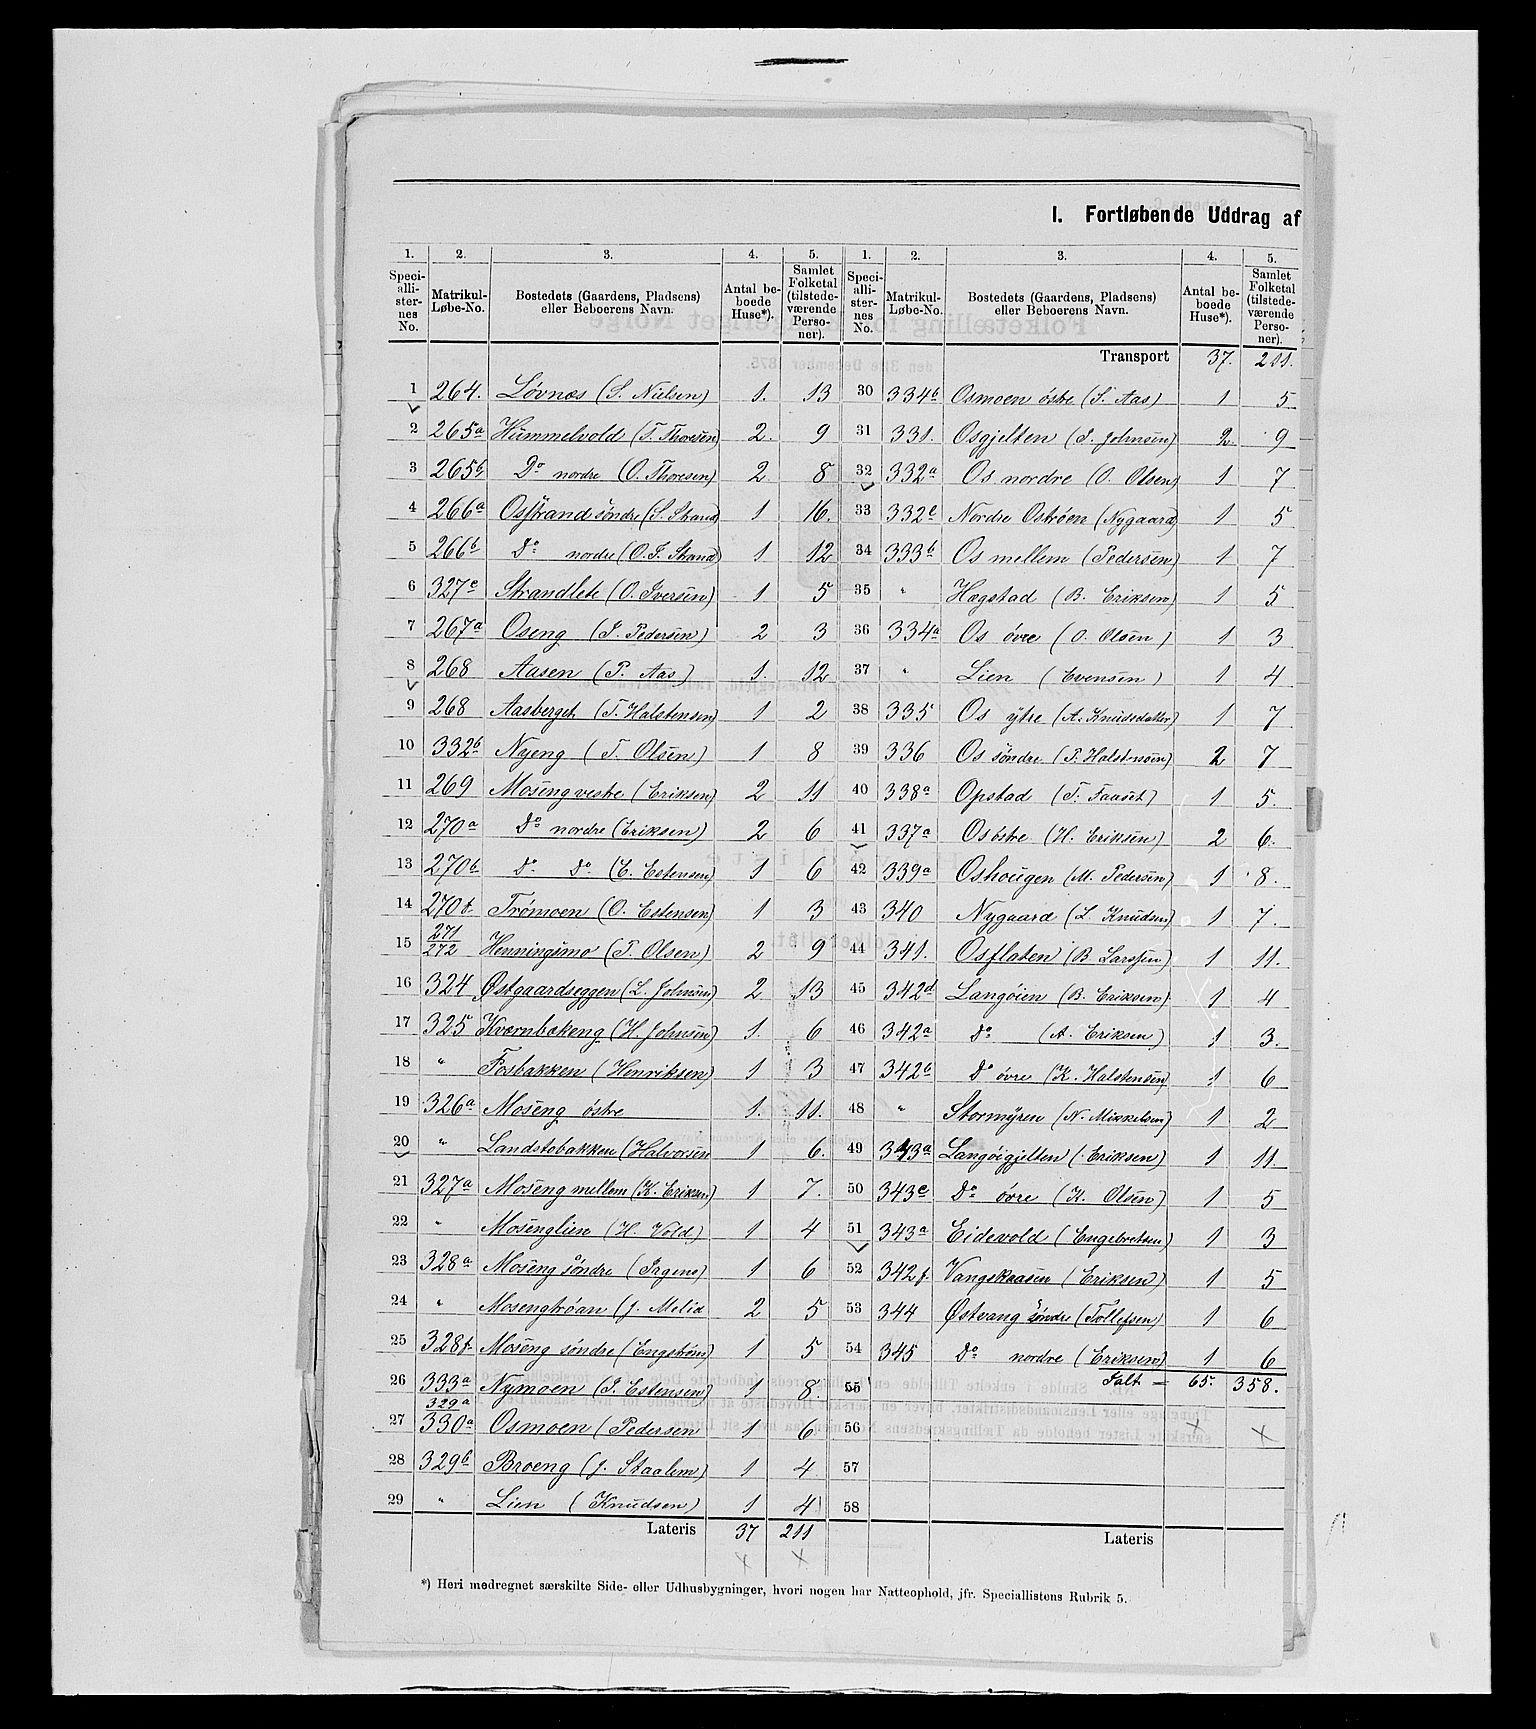 I. Fortløbende Uddrag af
1. 2. 3. 4. 5. 1. 2. 3. 4. 5.
Speciallisternes No. Matrikul-Løbe-No. Bostedets (Gaardens, Pladsens) eller Beboerens Navn. Antal beboede Huse*). Samlet Folketal (tilstedeværende Personer). Speciallisternes No. Matrikul-Løbe-No. Bostedets (Gaardens, Pladsens) eller Beboerens Navn. Antal beboede Huse*). Samlet Folketal (tilstedeværende Personer).
1 264. Løvnæs (S. Nielsen) 1. 13
2 265a Hummelvold (T. Thoresen) 2. 9
3 265b Do nordre (O. Thoresen) 2 8
4 266a Osstrand söndre (S. Strand) 1 16.
5 266b Do nordre (O. T. Strand) 1 12
6 327e Strandlete (O. Iversen) 1 5
7 267a Oseng (J. Pedersen) 2 3
8 268 Aasen (P. Aas) 1. 12
9 268 Aasberget (T. Halstensen) 1 2
10 332b Nyeng (T. Olsen) 1 8
11 269 Moseng vestre (Eriksen) 2 11
12 270a Do nordre (Eriksen) 2 6
13 270b Do Do (E. Estensen) 1 6
14 270f Trömoen (O. Estensen) 1 3
15 271/272 Henningsmo (T. Olsen) 2 9
16 324 Østgaardseggen (L. Johnsen) 2 13
17 325 Kværnbækeng (H. Johnsen) 1. 6
18 " Fosbakken (Henriksen) 1 3
19 326a Moseng östre 1. 11.
20 " Landstobakken (Halvorsen 1 6.
21 327a Moseng mellem (K. Eriksen) 1 7.
22 " Mosenglien (H. Vold) 1 4
23 328a Moseng söndre (Irgens) 1 6
24 " Mosengtröan (J. Melid 2 5
25 328f Moseng söndre (Engström) 1 5
26 333a Nymoen (J. Estensen) 1 8.
27 329a 330a Osmoen (Pedersen 1 6
28 329b Broeng (J. Staalem) 1 4
29 " Lien (Knudsen) 1 4
Lateris 37 211
Transport 37. 211.
30 334b Osmoen östre (S. Aas) 1 5
31 331. Osgjelten (J. Johnsen) 2. 9
32 332a Os nordre (O. Olsen) 1 7
33 332c Nordre Oströen (Nygaard) 1 5
34 333b Os mellem (Pedersen) 1 7
35 " Hægstad (B. Eriksen) 1 5
36 334a Os övre (O. Olsen) 1 3
37 " Lien (Evensen) 1 4
38 335 Os ytre (A. Knudsdatter) 1 7
39 336 Os söndre (P. Halstensen) 2 7
40 338a Opstad (T. Faaset) 1 5.
41 337a Os östre (H. Eriksen) 2 6.
42 339a Oshougen (M. Pedersen) 1 8.
43 340 Nygaard (L Knudsen) 1 7.
44 341. Osflaten (B Larssen) 1 11.
45 342d Langöien (B. Eriksen) 1 4
46 342a Do (A. Eriksen) 1 3.
47 342b Do övre (K. Halstensen) 1 6
48 " Stormyren (N. Mikkelsen) 1 2
49 343a Langöigjelten (Eriksen) 1 11.
50 343e Do övre (K. Olsen) 1 5
51 343a Eidevold (Engebretsen) 1 3
52 342f. Vangskaasen (Eriksen) 1 5
53 344 Østvang söndre (Tollefsen) 1 6
54 345 Do nordre (Eriksen) 1 6
55 Ialt = 65. 358.
56
57
58
Lateris
*) Heri medregnet særskilte Side- eller Udhusbygninger, hvori nogen har Natteophold, jfr. Speciallistens Rubrik 5.